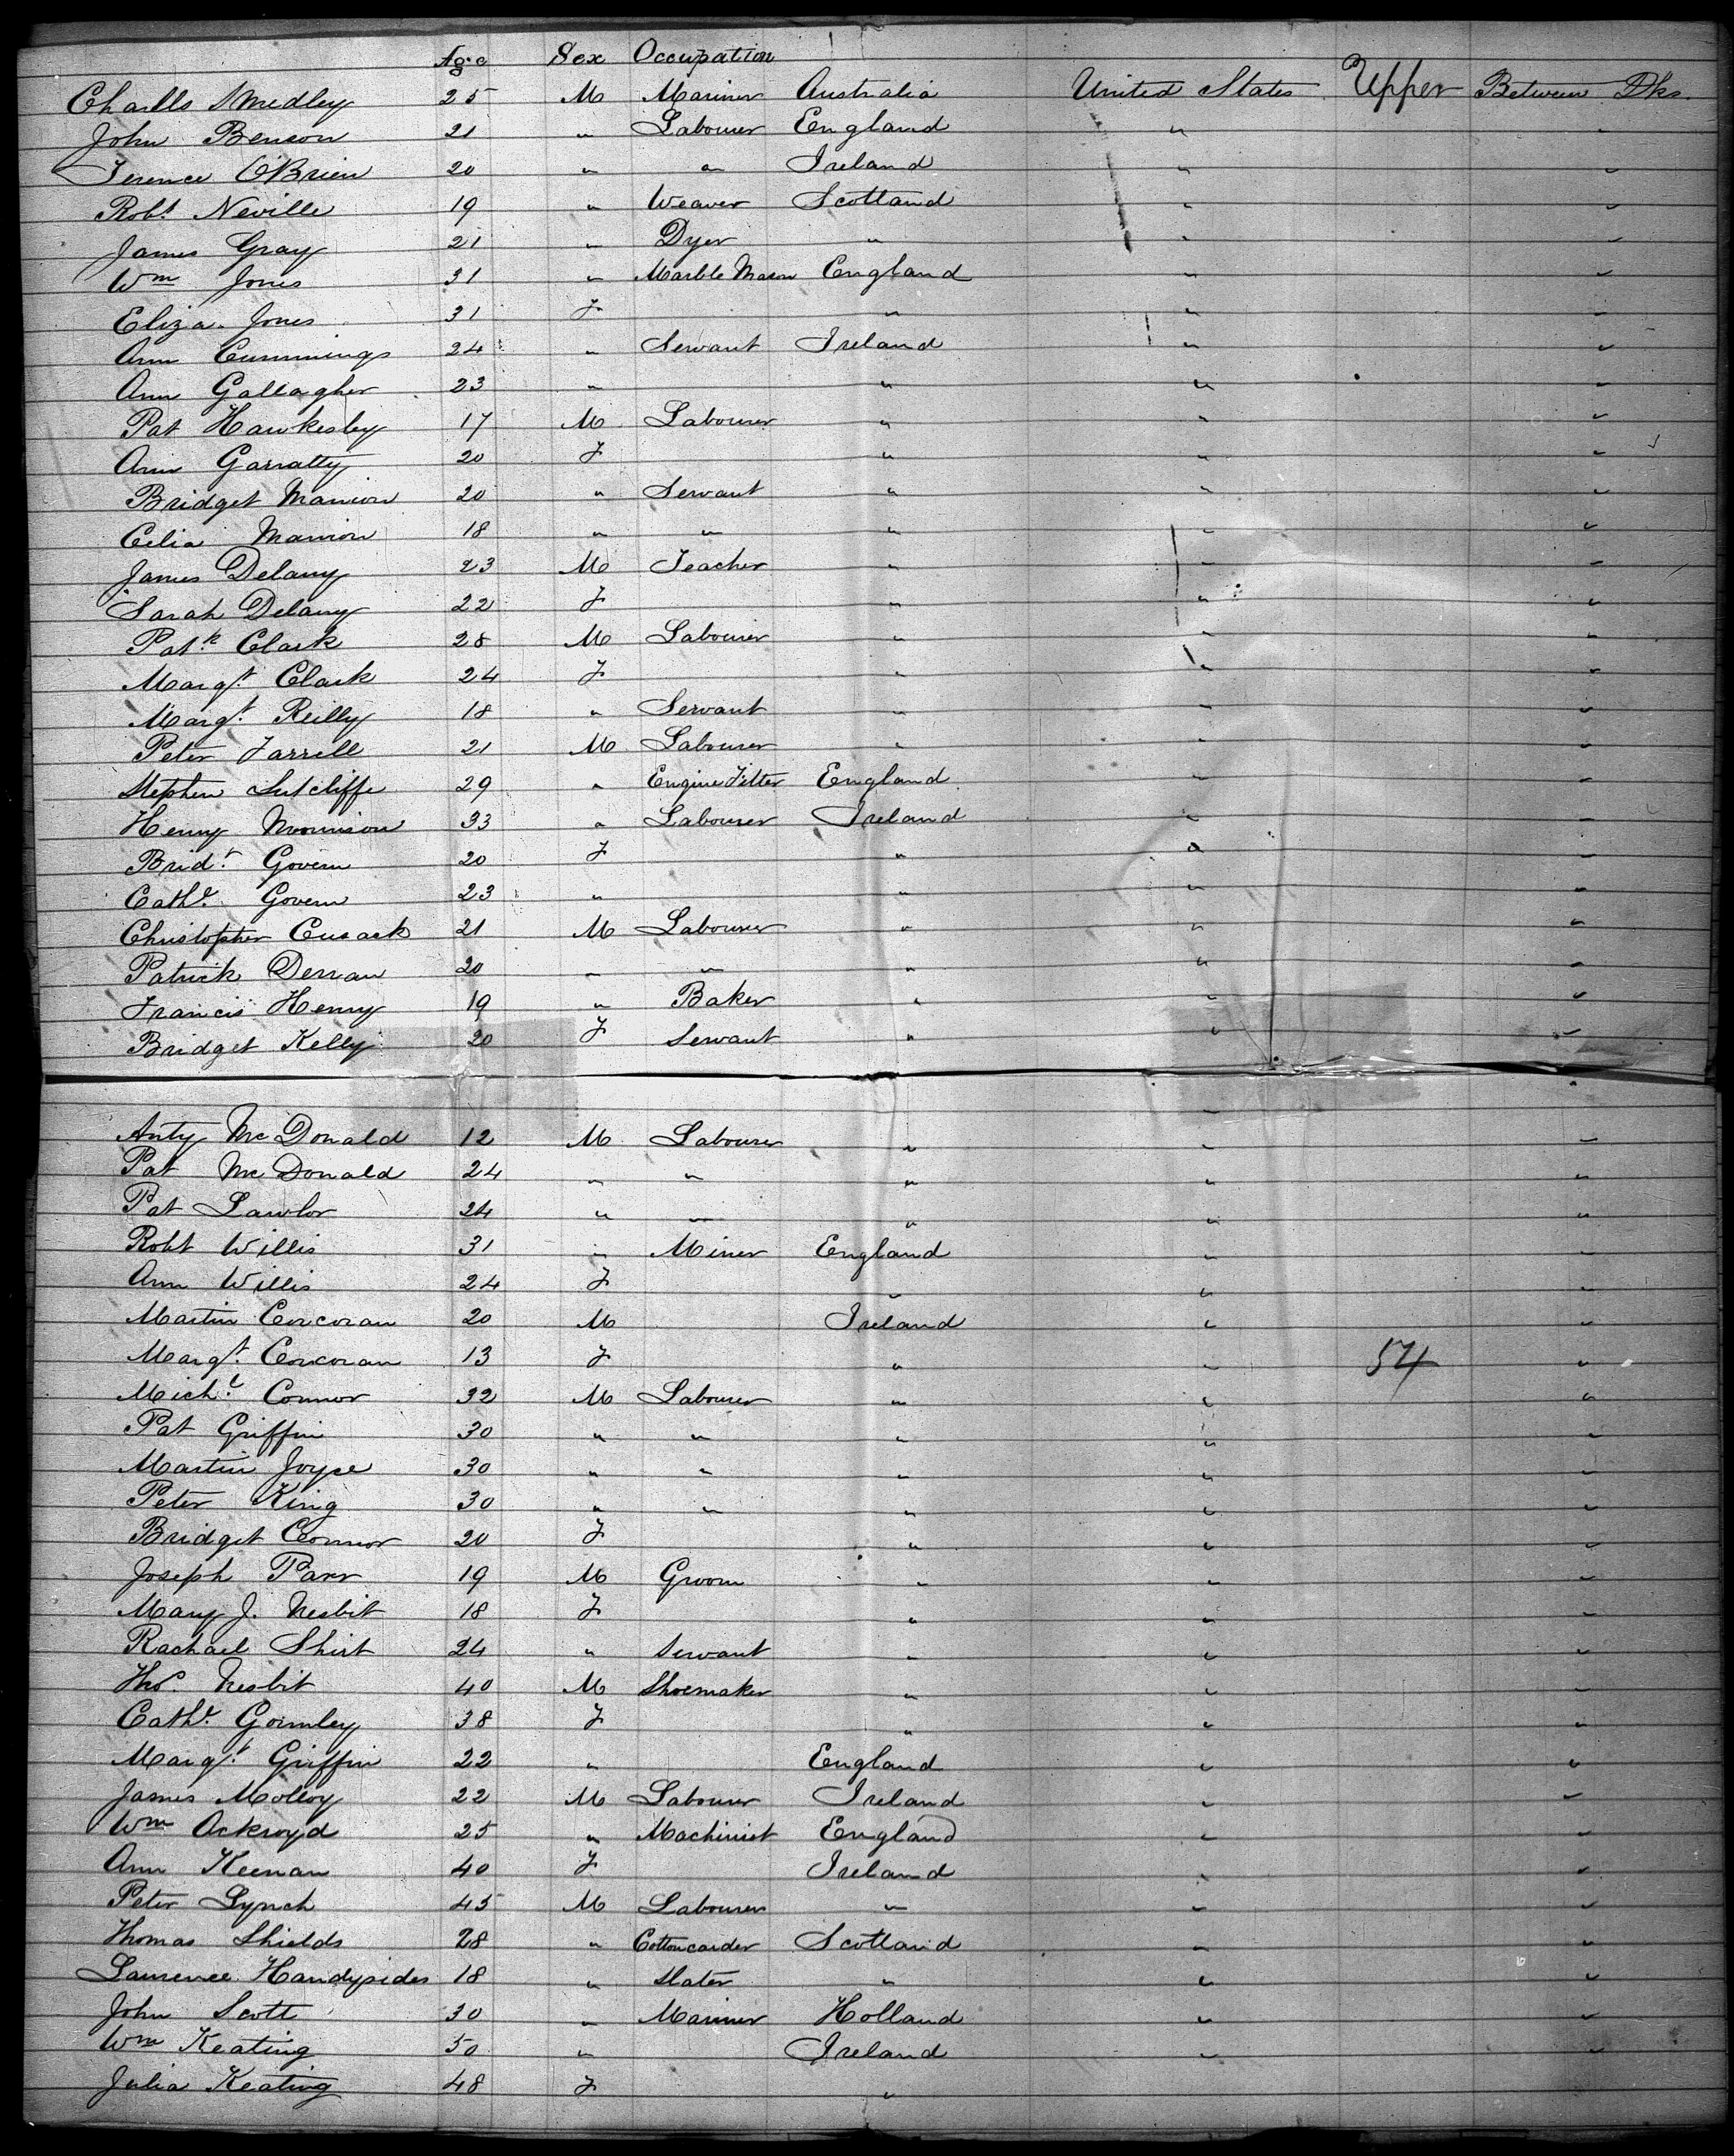 Age Sex Occupation
Charlls Smedley 25 M Mariner Australia United States Upper Between Dks.
John Benson 21 " Labourer England " "
Terence O'Brien 20 " " Ireland " "
Robt Neville 19 " Weaver Scotland " "
James Gray 21 " Dyer " " "
Wm Jones 31 " Marble Mason England " "
Eliza Jones 31 F " " "
Ann Cummings 24 " Servant Ireland " "
Ann Gallagher 23 " " " "
Pat Hawkesley 17 M Labourer " " "
Ann Garratty 20 F " " "
Bridget Manion 20 " Servant " " "
Celia Manion 18 " " " " "
James Delany 23 M Teacher " " "
Sarah Delany 22 F " " "
Patk Clark 28 M Labourer " " "
Margt Clark 24 F " " "
Margt Reilly 18 " Servant " " "
Peter Farrell 21 M Labourer " " "
Stephen Sutcliffe 29 " Engine Fitter England " "
Henry Morrison 33 " Labourer Ireland " "
Bridt Govern 20 F " " "
Cathe Govern 23 " " " "
Christopher Cusack 21 M Labourer " " "
Patrick Derran 20 " " " " "
Francis Henry 19 " Baker " " "
Bridget Kelly 20 F Servant " " "
" "
Anty McDonald 12 M Labourer " " "
Pat McDonald 24 " " " " "
Pat Lawlor 24 " " " " "
Robt Willis 31 " Miner England " "
Ann Willis 24 F " " "
Martin Corcoran 20 M Ireland " "
Margt Corcoran 13 F " " 54 "
Michl Connor 32 M Labourer " " "
Pat Griffin 30 " " " " "
Martin Joyce 30 " " " " "
Peter King 30 " " " " "
Bridget Connor 20 F " " "
Joseph Parr 19 M Groom " " "
Mary J. Nesbit 18 F " " "
Rachael Shirt 24 " Servant " " "
Thos. Nesbit 40 M Shoemaker " " "
Cathe Gormley 38 F " " "
Margt Griffin 22 " England " "
James Molloy 22 M Labourer Ireland " "
Wm Ackroyd 25 " Machinist England " "
Ann Keenan 40 F Ireland " "
Peter Lynch 45 M Labourer " " "
Thomas Shields 28 " Cotton carder Scotland " "
Laurence Handysides 18 " Slater " " "
John Scott 30 " Mariner Holland " "
Wm Keating 50 " Ireland " "
Julia Keating 48 F "